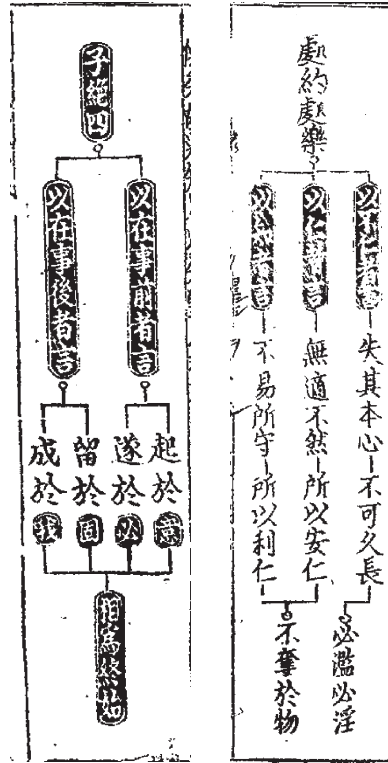 處約處樂
以不仁者言
失其本心
不可久長
必濫必淫
以仁者言
無適不然
所以安仁
以智者言
不易所守
所以利仁
不奪於物
子絕四
以在事前者言
起於意
遂於必
以在事後者言
留於固
成於我
相為終始